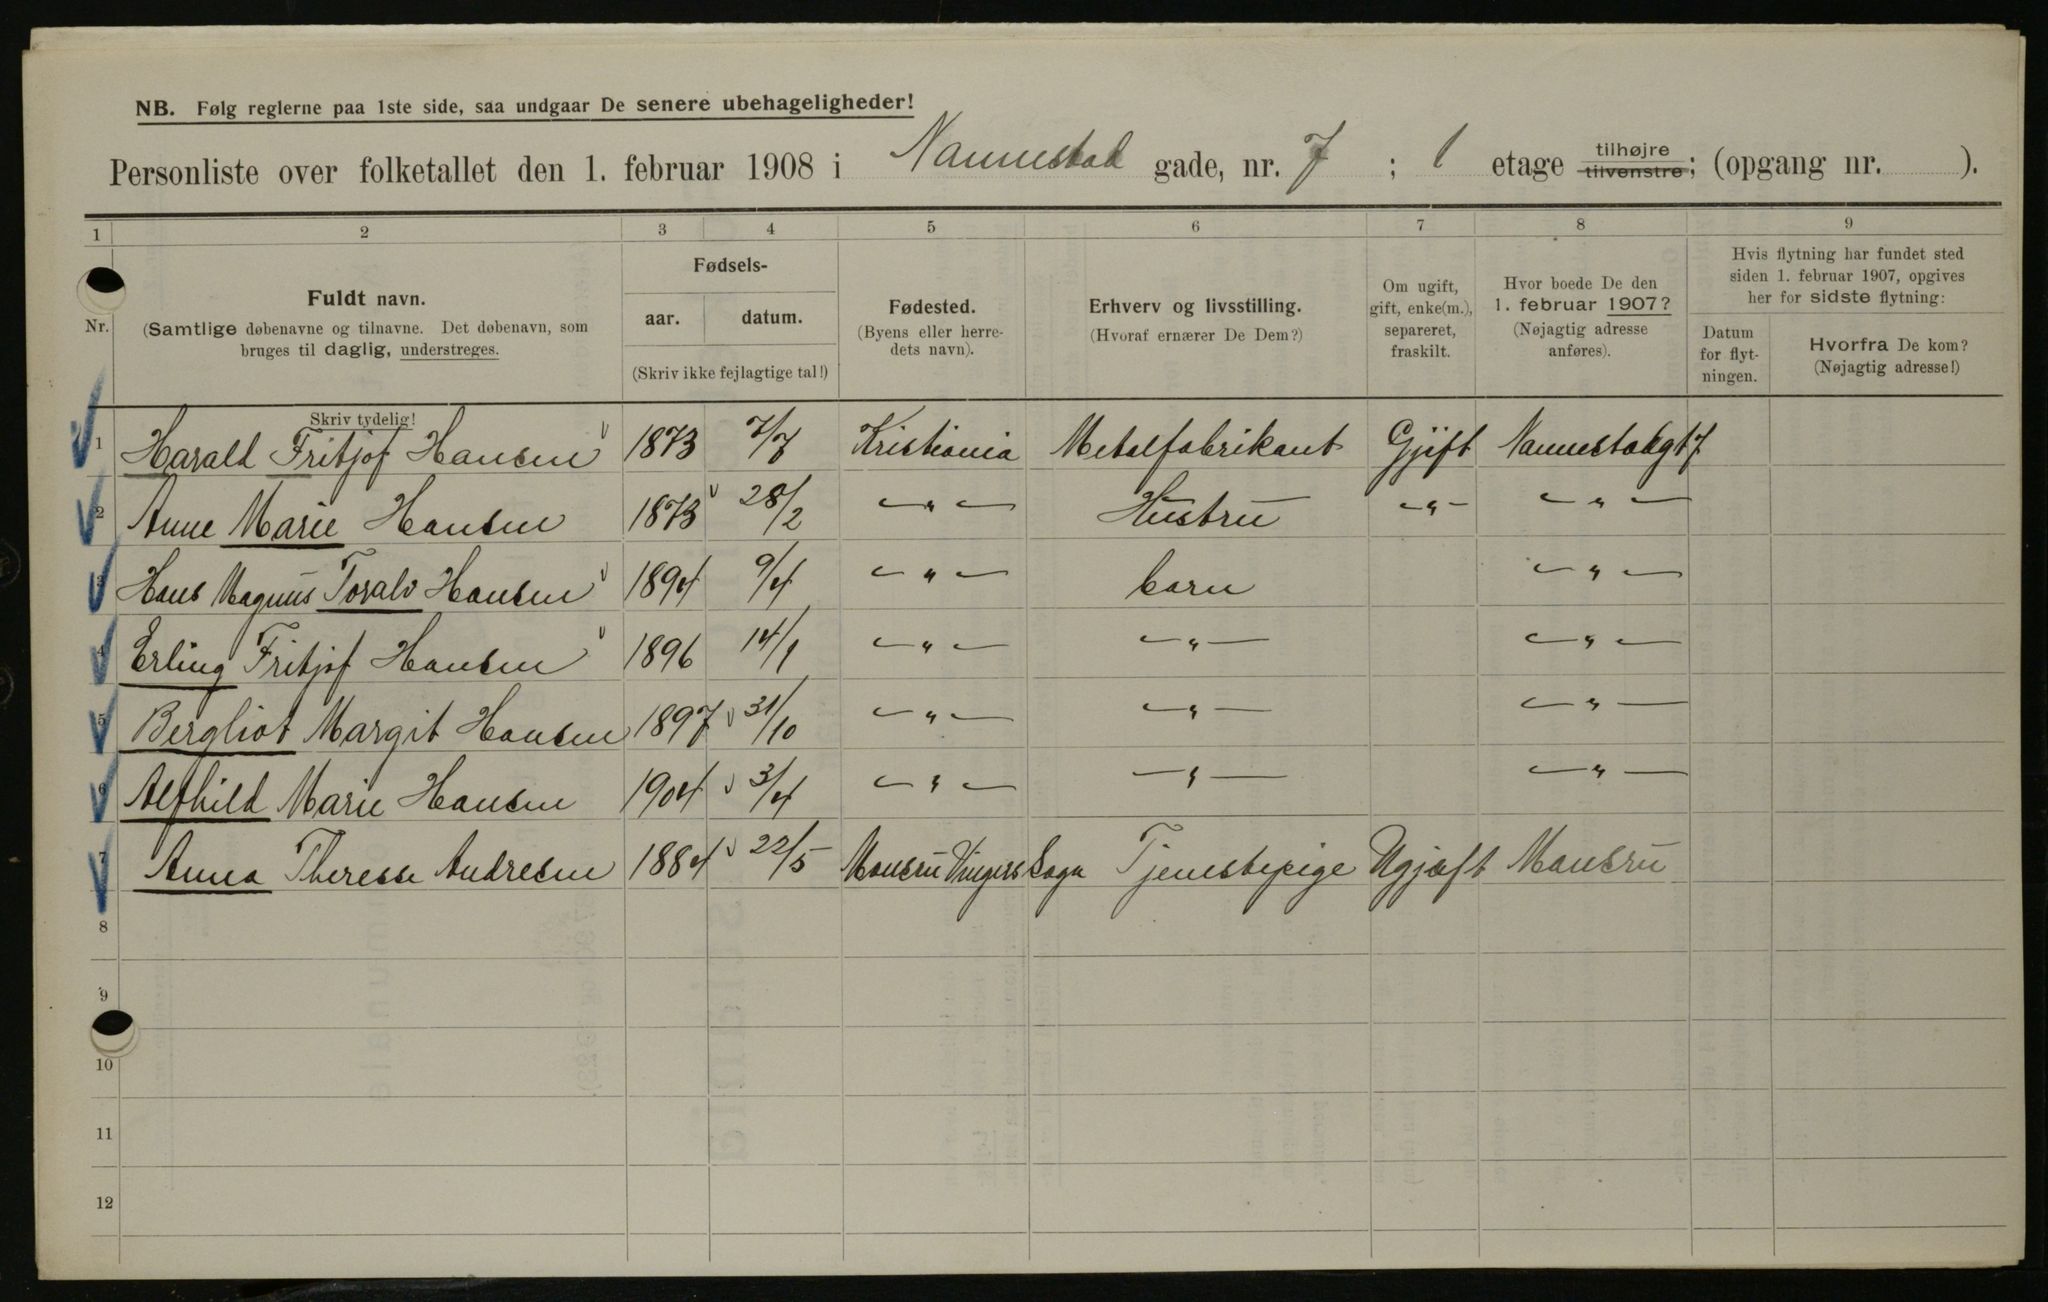 NB. Følg reglerne paa 1ste side, saa undgaar De senere ubehageligheder!
Personliste over folketallet den 1. februar 1908 i Nannestad gade, nr. 7 ; 1 etage tilhøjre tilvenstre; (opgang nr. ).
1 2 3 4 5 6 7 8 9
Nr. Fuldt navn. (Samtlige døbenavne og tilnavne. Det døbenavn, som bruges til daglig, understreges.
Fødsels- aar. datum. (Skriv ikke fejlagtige tal!)
Fødested. (Byens eller herre-dets navn).
Erhverv og livsstilling. (Hvoraf ernærer De Dem?)
Om ugift, gift, enke(m.), separeret, fraskilt.
Hvor boede De den 1. februar 1907? (Nøjagtig adresse anføres).
Hvis flytning har fundet sted siden 1. februar 1907, opgives her for sidste flytning:
Datum for flyt-ningen.
Hvorfra De kom? (Nøjagtig adresse!)
Skriv tydelig!
1 Harald Fritjof Hansen 1873 7/7 Kristiania Metalfabrikant Gjift Nannestadgt 7
2 Anne Marie Hansen 1873 28/2 — " — Hustru — " — — " —
3 Hans Magnus Toralv Hansen 1894 9/4 — " — barn — " —
4 Erling Fritjof Hansen 1896 14/1 — " — — " — — " —
5 Bergliot Margit Hansen 1897 31/10 — " — — " — — " —
6 Alfhild Marie Hansen 1904 3/4 — " — — " — — " —
7 Anna Theresse Andresen 1884 22/5 Mansru Vingers Sogn Tjenestepige Ugjift Mansru
8
9
10
11
12